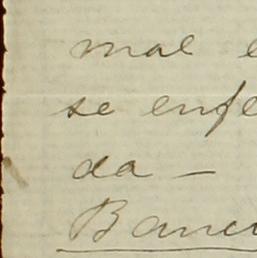 mal e
se enfe
da —
Banc